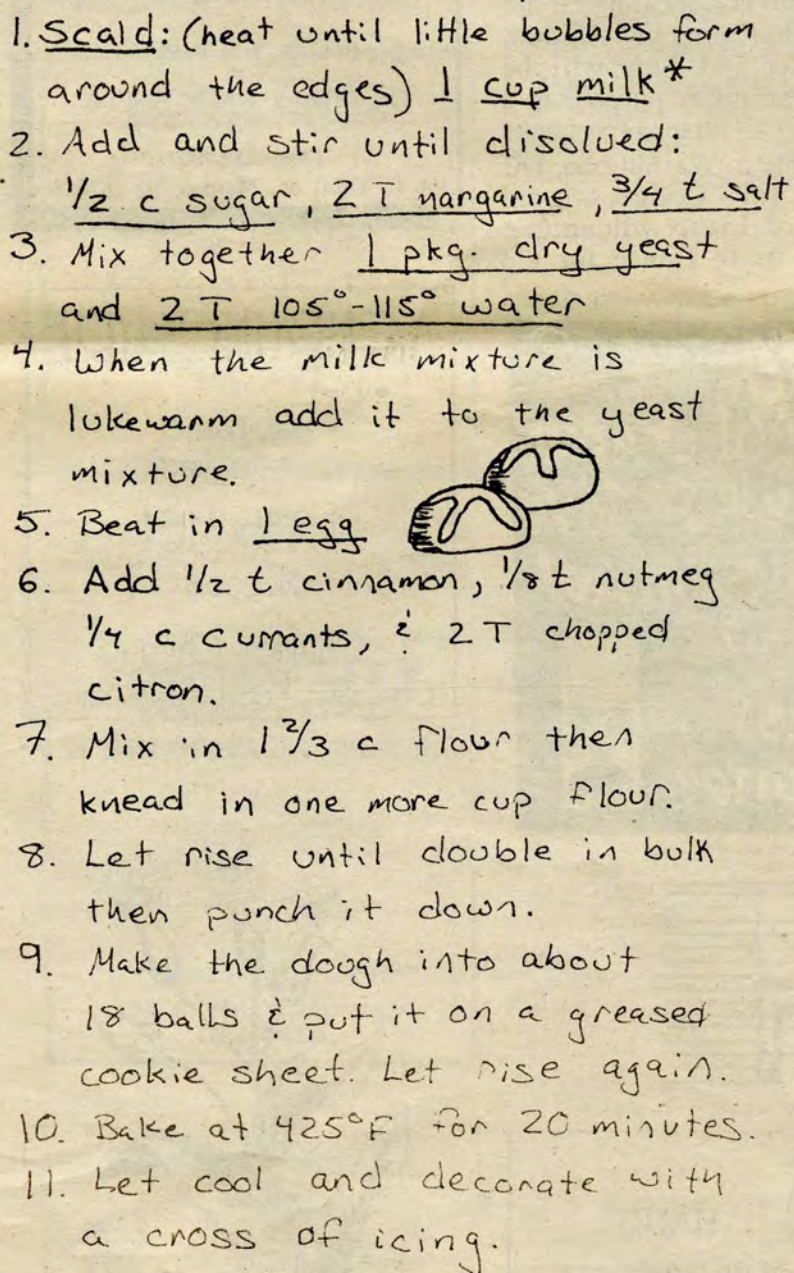 1. Scald: (heat until little bubbles form
around the edges) 1 cup milk*
2. Add and stir until disolved:
1/2 c sugar, 2 T nargarine, 3/4 t salt
3. Mix together 1 pkg. dry yeast
and 2 T 105°-115° water
4. When the milk mixture is
lukewarm add it to the yeast
mixture.
5. Beat in 1 egg
6. Add 1/2 t cinnamon, 1/8 t nutmeg
1/4 c currants, & 2 T chopped
citron.
7. Mix in 1 2/3 c flour then
knead in one more cup flour.
8. Let rise until double in bulk
then punch it down.
9. Make the dough into about
18 balls & put it on a greased
cookie sheet. Let rise again.
10. Bake at 425°F for 20 minutes.
11. Let cool and decorate with
a cross of icing.